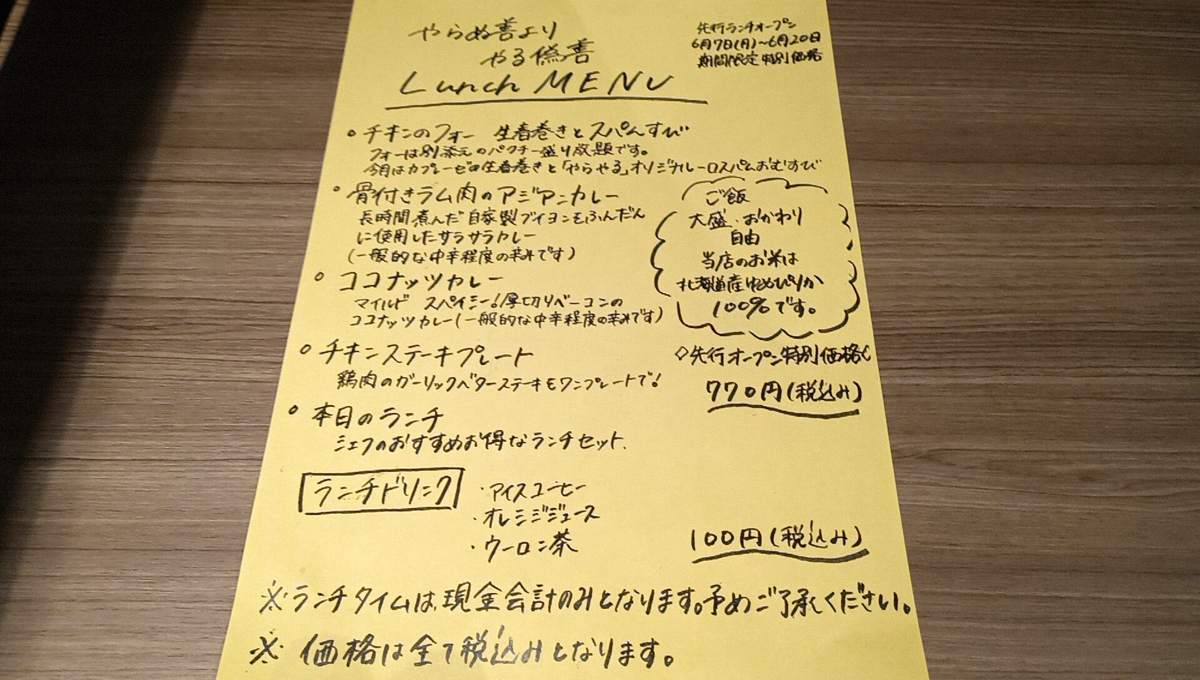 やらぬ善より
やる偽善
Lunch MENU
先行ランチオープン
6月7日(月)~6月20日
期間限定特別価格
・チキンのフォー 生春巻きとスパムすび
フォーは別添えのパクチー盛り放題です。
今月はカプレーゼの生春巻きと「やらやる」オリジナル一口スパムおむすび
・骨付きラム肉のアジアンカレー
長時間煮んだ自家製ブイヨンをふんだん
に使用したサラサラカレー
(一般的な中辛程度の辛みです)
・ココナッツカレー
マイルド スパイシー!厚切りベーコンの
ココナッツカレー(一般的な中辛程度の辛みです)
ご飯
大盛・おかわり
自由
当店のお米は
北海道産ゆめぴりか
100%です。
・チキンステーキプレート
鶏肉のガーリックバターステーキをワンプレートで!
◇先行オープン特別価格
770円(税込み)
・本日のランチ
シェフのおすすめお得なランチセット.
ランチドリンク
・アイスコーヒー
・オレンジジュース
・ウーロン茶
100円(税込み)
※ランチタイムは現金会計のみとなります。予めご了承ください。
※価格は全て税込みとなります。